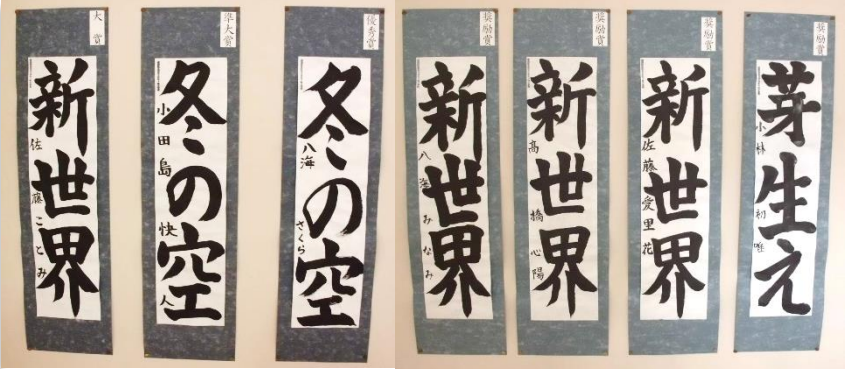 大賞
新世界
佐藤ことみ
準大賞
冬の空
小田島快人
優秀賞
冬の空
八海さくら
奨励賞
新世界
八海みなみ
奨励賞
新世界
高橋心陽
奨励賞
新世界
佐藤愛里花
奨励賞
芽生え
小林初唯